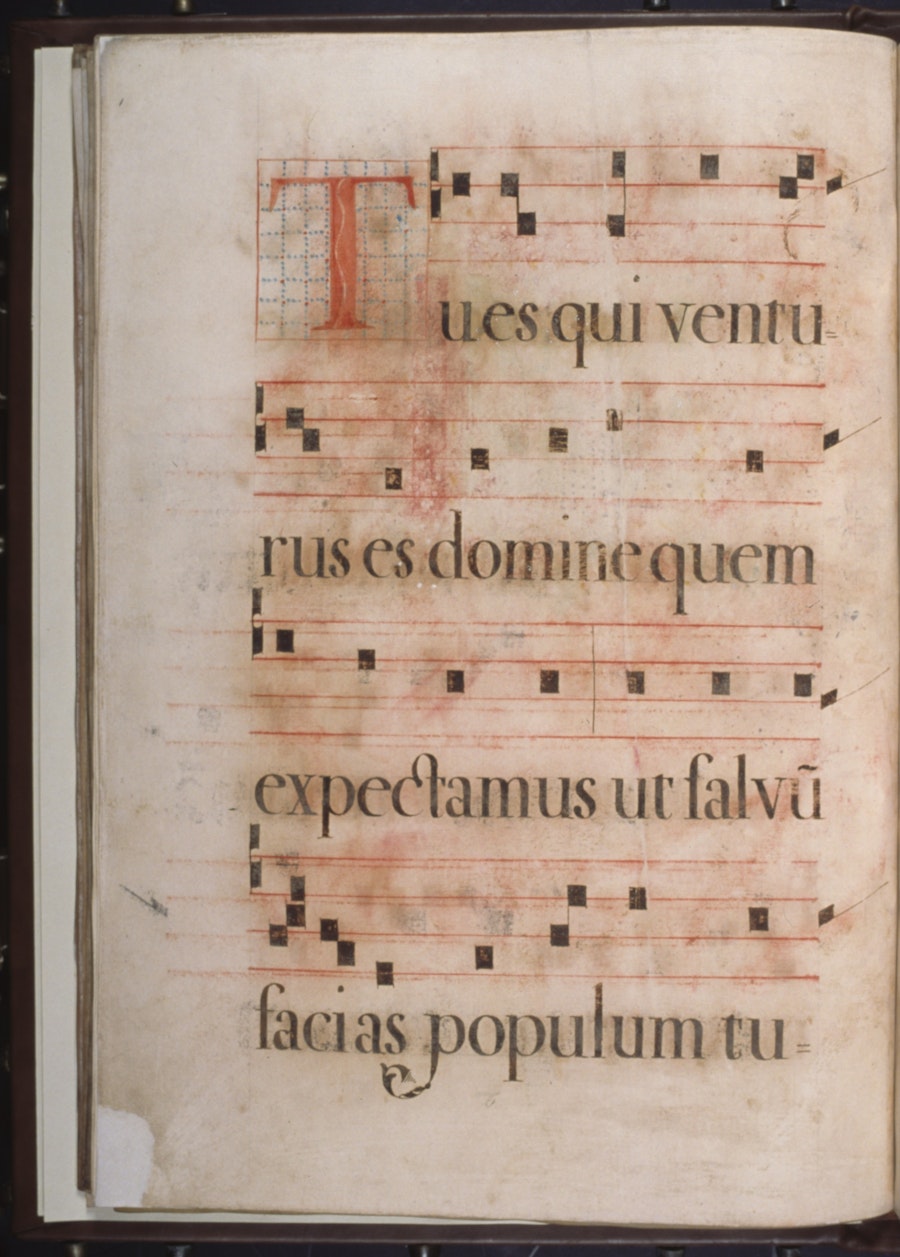 Tu es qui ventu=
rus es domine quem
expectamus ut salvũ
facias populum tu=